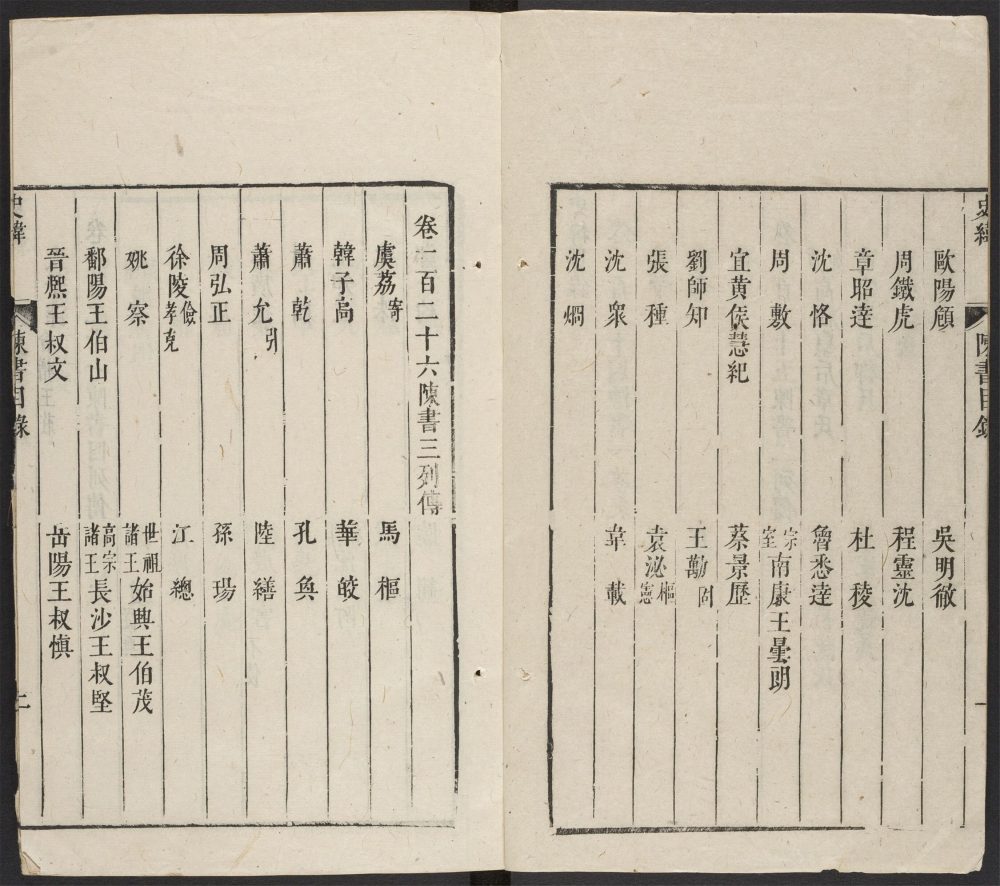 歐陽頠 吳明徹
周鐵虎 程靈洗
章昭達 杜稜
沈恪 魯悉達
周敷 宗室南康王曇朗
宜黃侯慧紀 蔡景歷
劉師知 王勱固
張種 袁泌樞憲
沈衆 韋載
沈烱
史緯 陳書目錄 一
卷一百二十六陳書三列傳
虞荔寄 馬樞
韓子高 華皎
蕭乾 孔奐
蕭允引 陸繕
周弘正 孫瑒
徐陵儉孝克 江總
姚察 世祖諸王始興王伯茂
鄱陽王伯山 高宗諸王長沙王叔堅
晉熈王叔文 岳陽王叔慎
史緯 陳書目錄